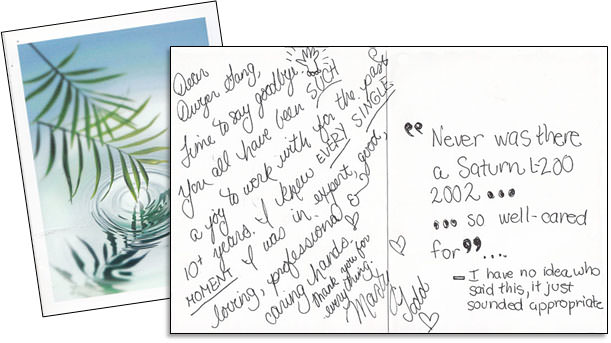 Dear
Dwyer Gang,
Time to say goodbye.
You all have been SUCH
a joy to work with for the past
10+ years. I knew EVERY SINGLE
MOMENT I was in expert, good,
loving, professional &
caring hands.
Thank you for
everything!
Marty &
Todd
"Never was there
a Saturn L-200
2002 ...
... so well-cared
for"....
- I have no idea who
said this, it just
sounded appropriate